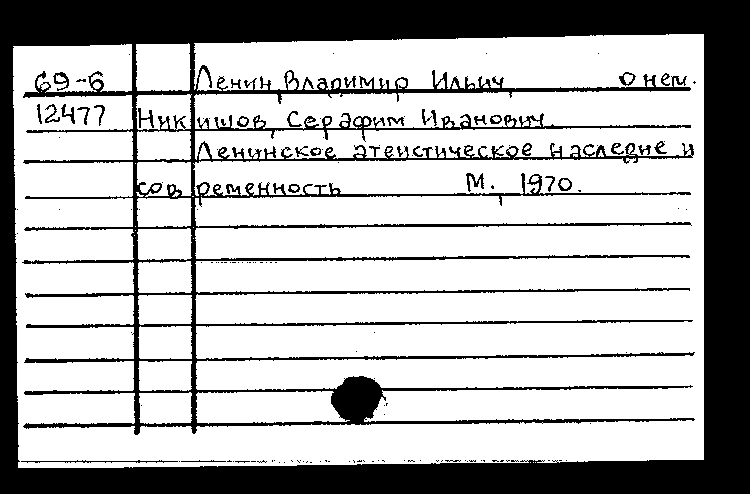 69-6 Ленин, Владимир Ильич, о нем.
12477 Никишов, Серафим Иванович.
Ленинское атеистическое наследие и
современность М., 1970.